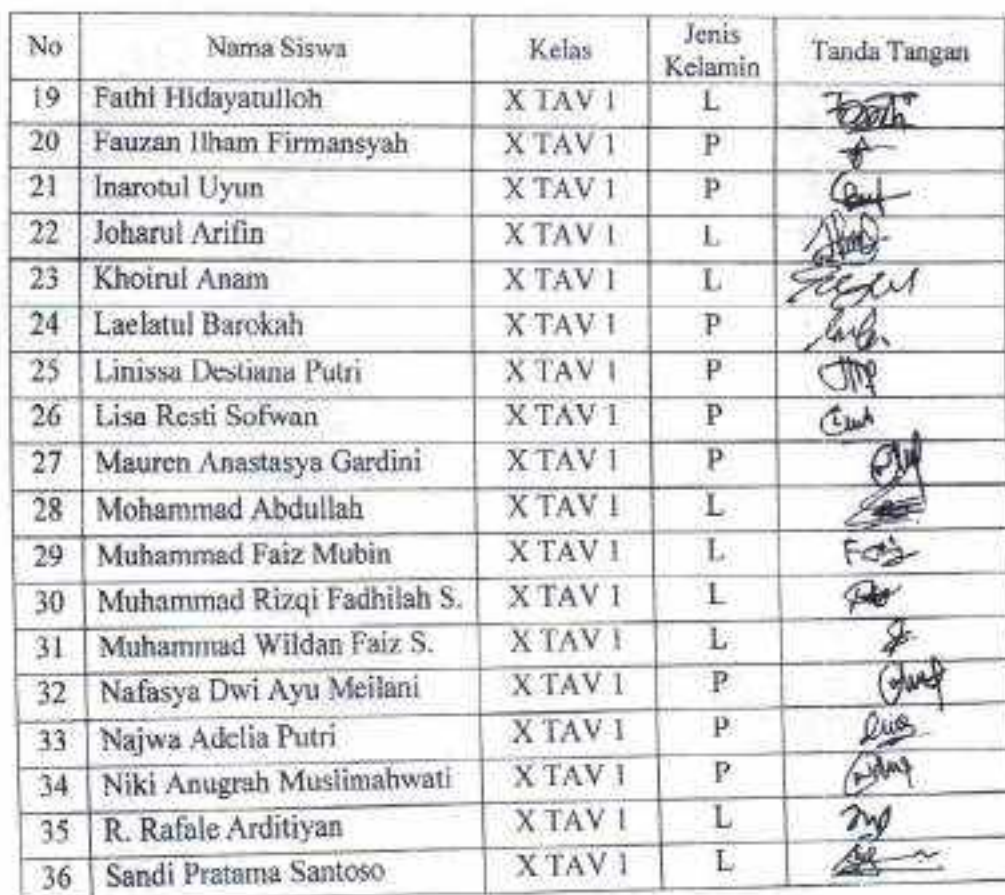 No Nama Siswa Kelas Jenis Kelamin Tanda Tangan
19 Fathi Hidayatulloh X TAV 1 L
20 Fauzan Ilham Firmansyah X TAV 1 P
21 Inarotul Uyun X TAV 1 P
22 Joharul Arifin X TAV 1 L
23 Khoirul Anam X TAV 1 L
24 Laelatul Barokah X TAV 1 P
25 Linissa Destiana Putri X TAV 1 P
26 Lisa Resti Sofwan X TAV 1 P
27 Mauren Anastasya Gardini X TAV 1 P
28 Mohammad Abdullah X TAV 1 L
29 Muhammad Faiz Mubin X TAV 1 L
30 Muhammad Rizqi Fadhilah S. X TAV 1 L
31 Muhammad Wildan Faiz S. X TAV 1 L
32 Nafasya Dwi Ayu Meilani X TAV 1 P
33 Najwa Adelia Putri X TAV 1 P
34 Niki Anugrah Muslimahwati X TAV 1 P
35 R. Rafale Arditiyan X TAV 1 L
36 Sandi Pratama Santoso X TAV 1 L